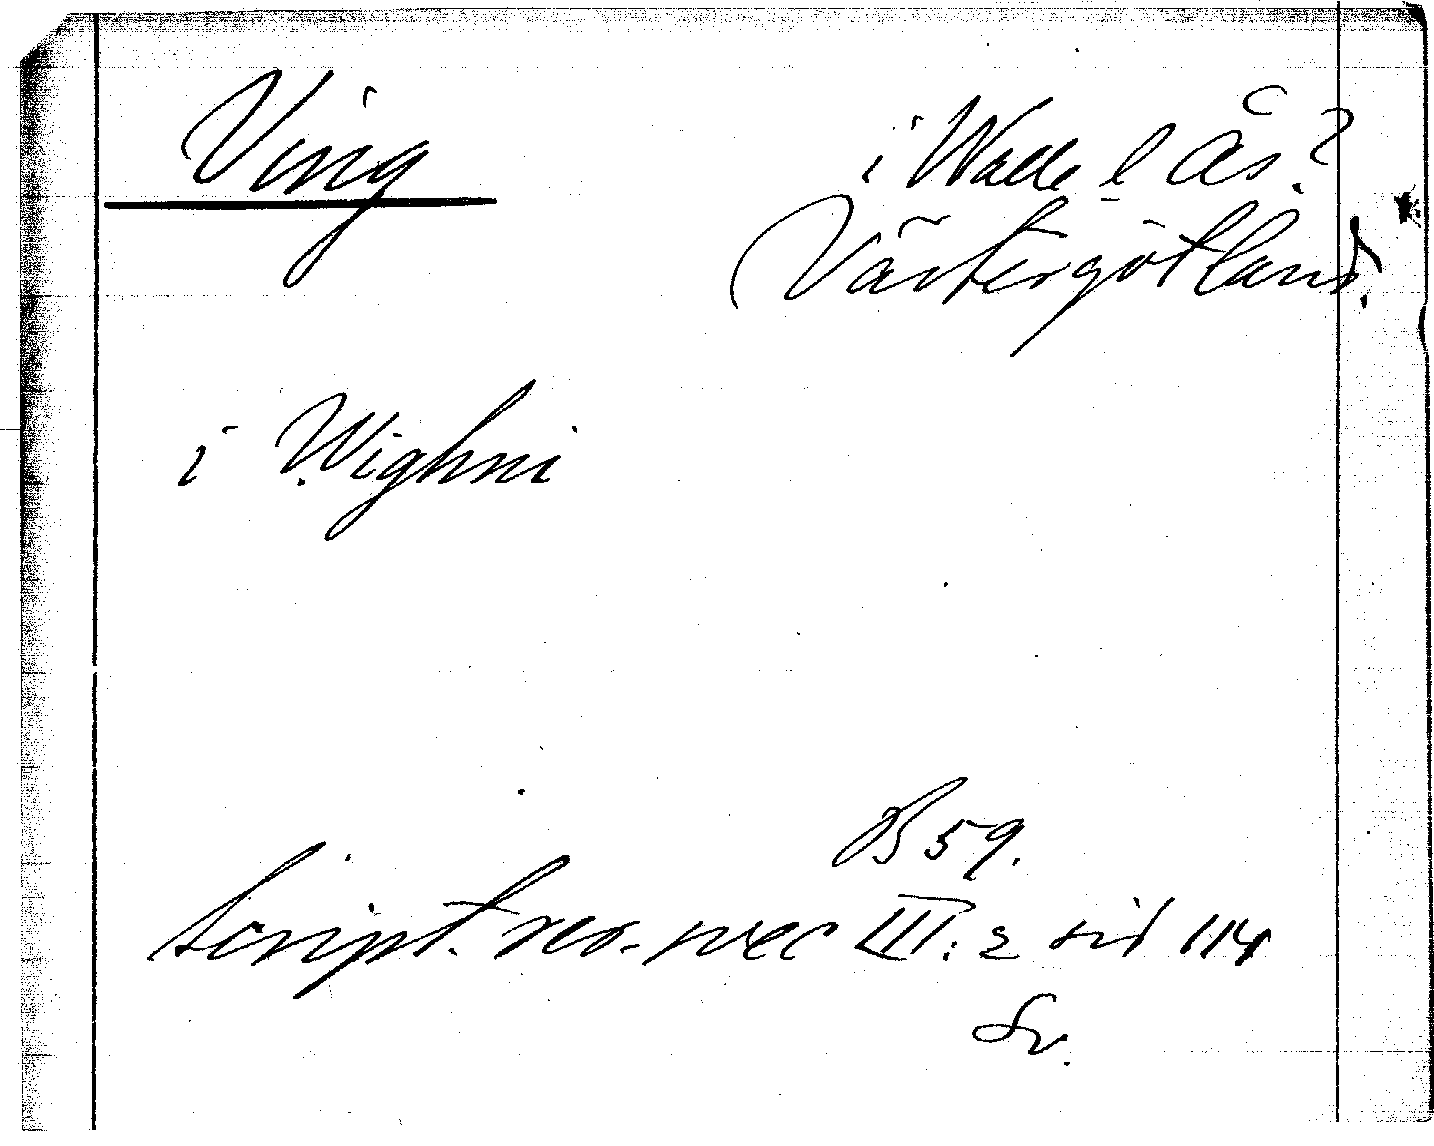 Ving i Walle l Ås?
Västergötland.
i Wighni
B 59.
Script. rer. svec III: 2 sid 114
Sv.